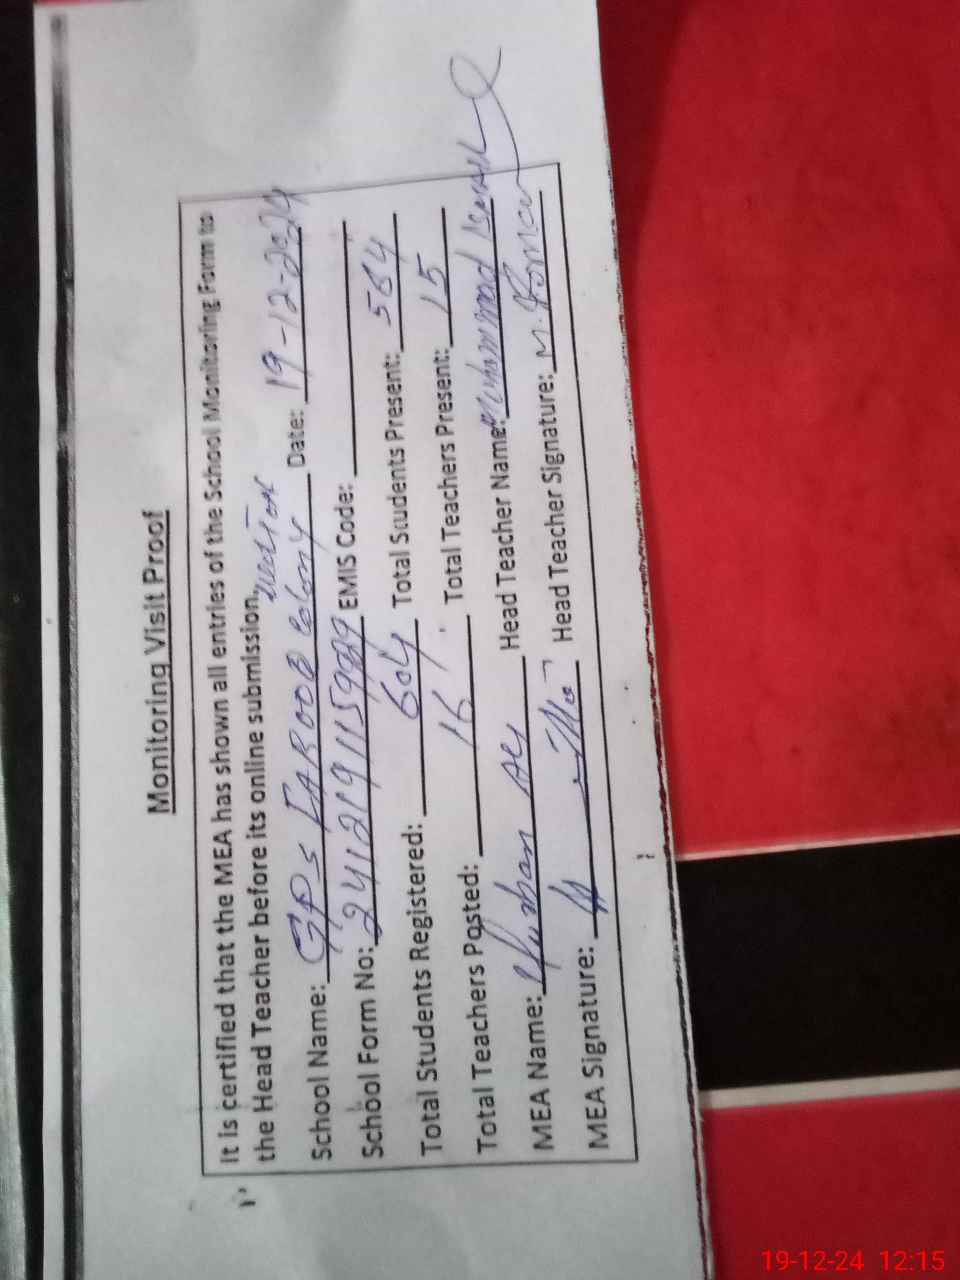 Monitoring Visit Proof
It is certified that the MEA has shown all entries of the School Monitoring Form to
the Head Teacher before its online submission.
School Name: GPS FAROOQ Colony Date: 19-12-2024
School Form No: EMIS Code:
Total Students Registered: 604 Total Students Present: 564
Total Teachers Posted: 16 Total Teachers Present: 15
MEA Name: Head Teacher Name: Muhammad
MEA Signature: Head Teacher Signature:
19-12-24 12:15